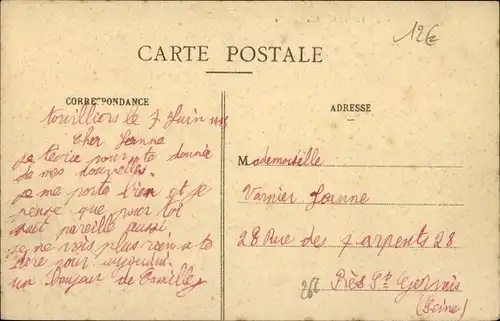 12€
CARTE POSTALE
CORRESPONDANCE
ADRESSE
le 7 Juin
Cher Jeanne
je técrie pour te donnée
de mes nouvelles
je me porte bien et je
pense que pour toi
soit pareille aussi
je ne vois plus rien a te
dire pour
un bonjour de Camille
Mademoiselle
Varnier Jeanne
28 Rue des 7 arpents 28
Près St Gervais
(Seine)